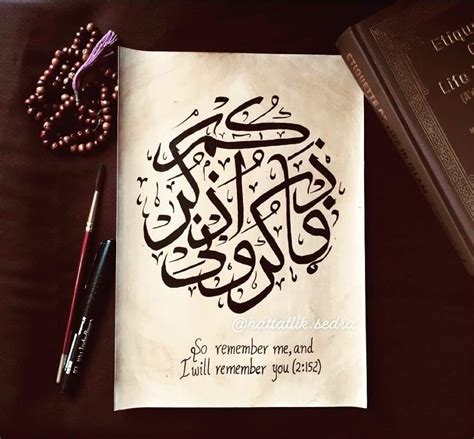 فاذكروني
اذكركم
@hattatlik.sedra
So remember me, and
I will remember you (2:152)
Etique
Life
ETIQUETTE